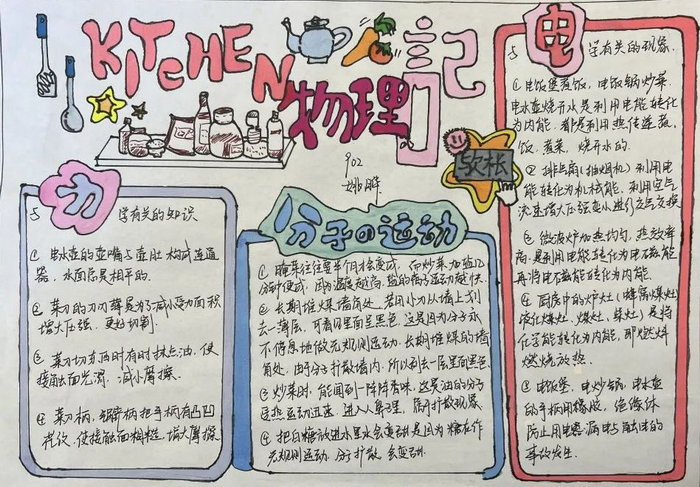 KITCHEN
物理
記
902
姚晔
软长
力
与 学有关的知识
① 电水壶的壶嘴与壶肚构成连通
器,水面总是相平的.
② 菜刀的刀刃薄是为了减小受力面积
增大压强,更好切割.
③ 菜刀切东西时有时抹点油,使
接触面光滑,减小摩擦.
④ 菜刀柄,锅铲柄把手柄有凸凹
花纹,使接触面粗糙,增大摩擦
分子の运动
① 腌菜往往要半个月才会变咸,而炒菜加盐几
分钟便咸,因为温度越高,盐的离子运动越快.
② 长期堆煤墙角处,若用小刀从墙上刮
去一薄层,可看见里面呈黑色,这是因为分子永
不停息地做无规则运动,长期堆煤的墙
角处,由于分子扩散墙内,所以刮去一层里面黑色.
③ 炒菜时,能闻到一阵阵香味,这是油的分子
受热运动迅速,进入鼻子里,属于扩散现象.
④ 把白糖放进水里水会变甜是因为糖在作
无规则运动,分子扩散,会变甜.
电
与 学有关的现象.
① 电饭煲煮饭,电饭锅炒菜,
电水壶烧开水是利用电能转化
为内能,都是利用热传递煮
饭,煮菜,烧开水的.
② 排气扇(抽烟机)利用电
能转化为机械能,利用空气
流速增大压强变小进行空气交换
③ 微波炉加热均匀,热效率
高,是利用电能转化为电磁能
再将电磁能转化为内能.
④ 厨房中的炉灶(蜂窝煤灶)
液化煤灶,煤灶,柴灶)是将
化学能转化为内能,即燃料
燃烧放热.
⑤ 电饭煲,电炒锅,电水壶
的手柄用橡胶,绝缘体
防止用电器漏电与触电的
事故发生.